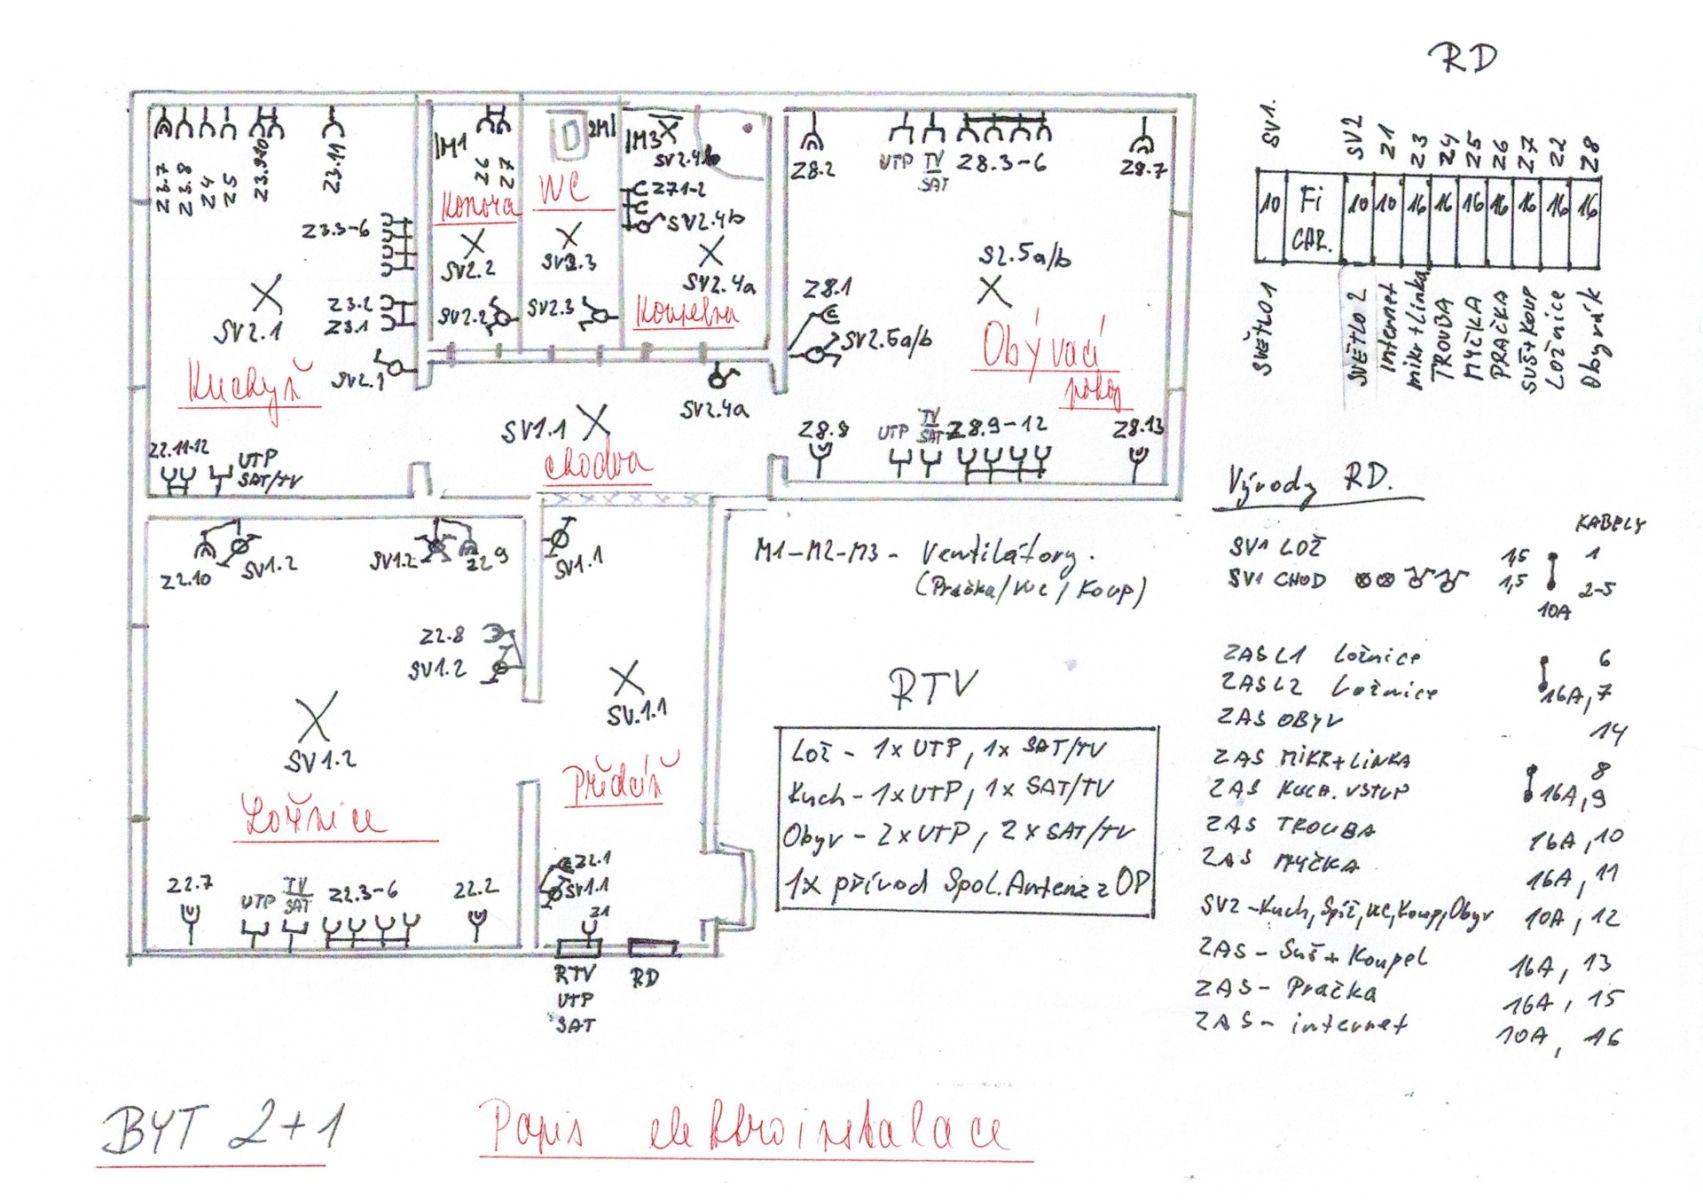 RD
SV1.
SV2
Z1
Z3
Z4
Z5
Z6
Z7
Z2
Z8
10 Fi CAR. 10 10 16 16 16 16 16 16 16
SVĚTLO 1
SVĚTLO 2
Internet
mikr+linka
TROUBA
MYČKA
PRAČKA
SUŠ+KOUP
Ložnice
Obyvák
Z3.7
Z3.8
Z4
Z5
Z3.9,10
Z3.11
Z3.3-6
Z3.2
Z3.1
SV2.1
SV2.1
Kuchyň
Z2.11-12
UTP
SAT/TV
M1
Z6
Z7
Komora
SV2.2
SV2.2
2M
WC
SV2.3
SV2.3
M3
SV2.4b
Z7.1-2
SV2.4b
SV2.4a
Koupelna
SV2.4a
SV1.1
chodba
Z8.2
UTP
TV
SAT
Z8.3-6
Z8.7
S2.5a/b
Z8.1
SV2.5a/b
Obývací
pokoj
Z8.8
UTP
TV
SAT
Z8.9-12
Z8.13
Z2.10
SV1.2
SV1.2
Z2.9
SV1.1
Z2.8
SV1.2
SV1.2
SV.1.1
Ložnice
Předsíň
Z2.7
UTP
TV
SAT
Z2.3-6
Z2.2
Z2.1
SV1.1
Z1
RTV
UTP
SAT
RD
M1-M2-M3 - Ventilátory.
(Pračka/WC/Koup)
RTV
Lož - 1x UTP, 1x SAT/TV
Kuch - 1x UTP, 1x SAT/TV
Obyv - 2x UTP, 2x SAT/TV
1x přívod Spol. Antena z OP
Vývody RD.
KABELY
SV1 LOŽ 1,5 1
SV1 CHOD 1,5 2-5
10A
ZAS L1 Ložnice 6
ZAS L2 Ložnice 16A, 7
ZAS OBYV 14
ZAS MIKR+LINKA 8
ZAS KUCH. VSTUP 16A, 9
ZAS TROUBA 16A, 10
ZAS MYČKA 16A, 11
SV2 - Kuch, Spíž, WC, Koup, Obyv 10A, 12
ZAS - Suš + Koupel 16A, 13
ZAS - Pračka 16A, 15
ZAS - internet 10A, 16
BYT 2+1
Popis elektroinstalace